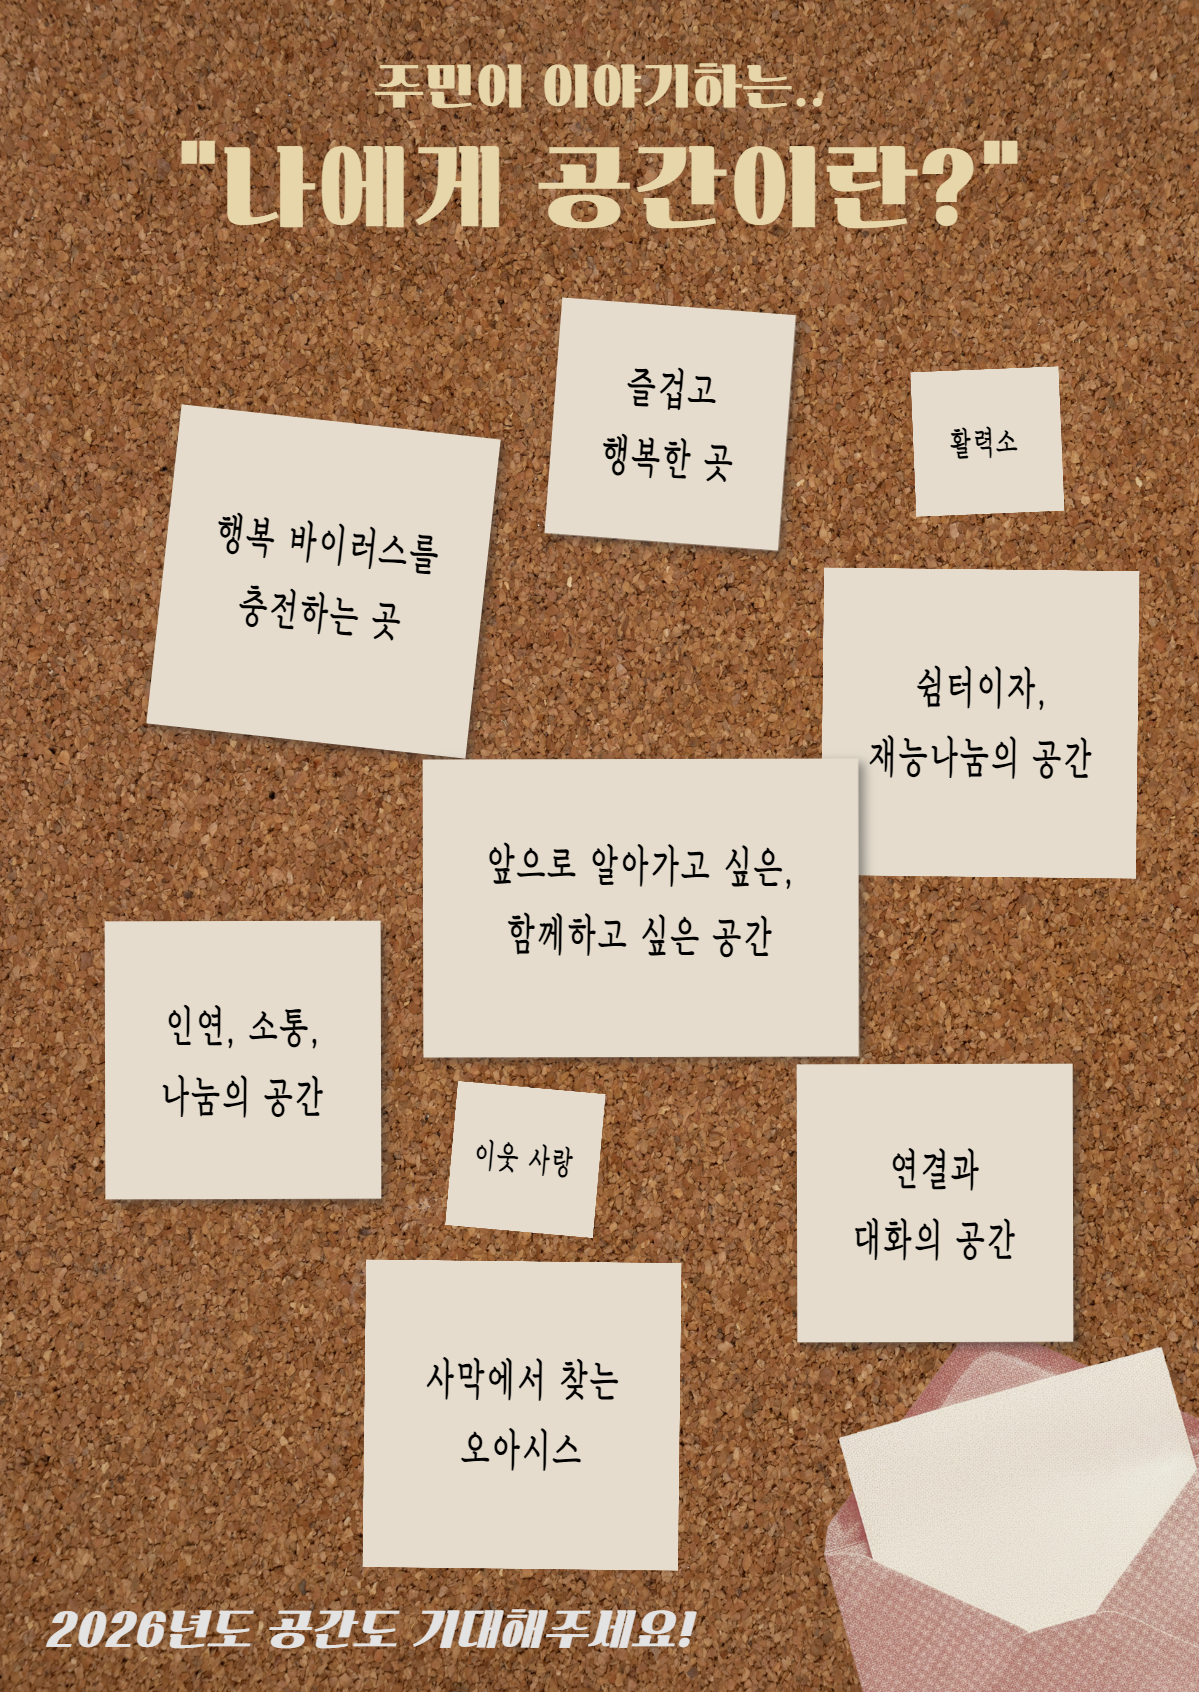 주민이 이야기하는..
"나에게 공간이란?"
즐겁고
행복한 곳
활력소
행복 바이러스를
충전하는 곳
쉼터이자,
재능나눔의 공간
앞으로 알아가고 싶은,
함께하고 싶은 공간
인연, 소통,
나눔의 공간
이웃 사랑
연결과
대화의 공간
사막에서 찾는
오아시스
2026년도 공간도 기대해주세요!